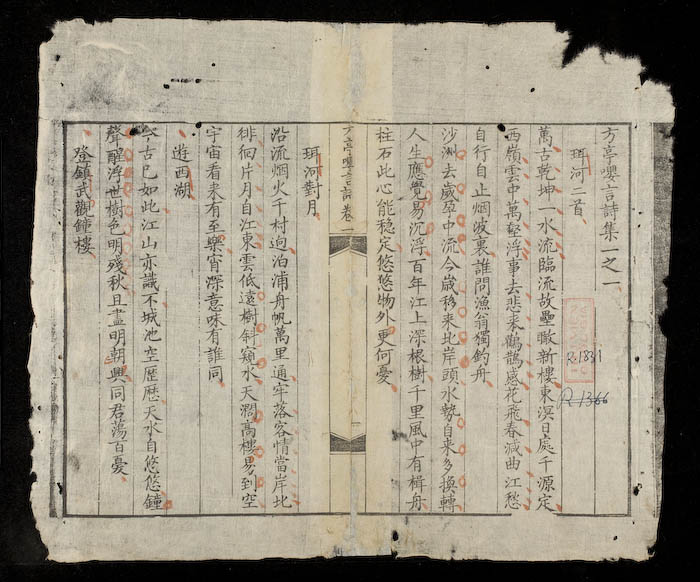 方亭嚶言詩集一之一
珥河二首
萬古乾坤一水流臨流故壘瞰新樓東溟日處千源定
西嶺雲中萬壑浮事去悲来鸛鵲感花飛春減曲江愁
自行自止烟波裏誰問漁翁獨釣舟
沙洲去歲孕中流今歲移来北岸頭水勢自来多換轉
人生應覺易沉浮百年江上深根樹千里風中有楫舟
柱石此心能穩定悠悠物外更何憂
R.1831
R.1366
方亭嚶言詩卷一
珥河對月
沿流烟火千村逈泊浦舟帆萬里通牢落客情當岸北
徘徊片月自江東雲低遠樹斜窺水天濶高樓易到空
宇宙看来有至樂宵深意味有誰同
遊西湖
今古已如此江山亦識不城池空歷歷天水自悠悠鐘
聲醒浮世樹色明殘秋且盡明朝興同君蕩百憂
登鎮武觀鐘樓